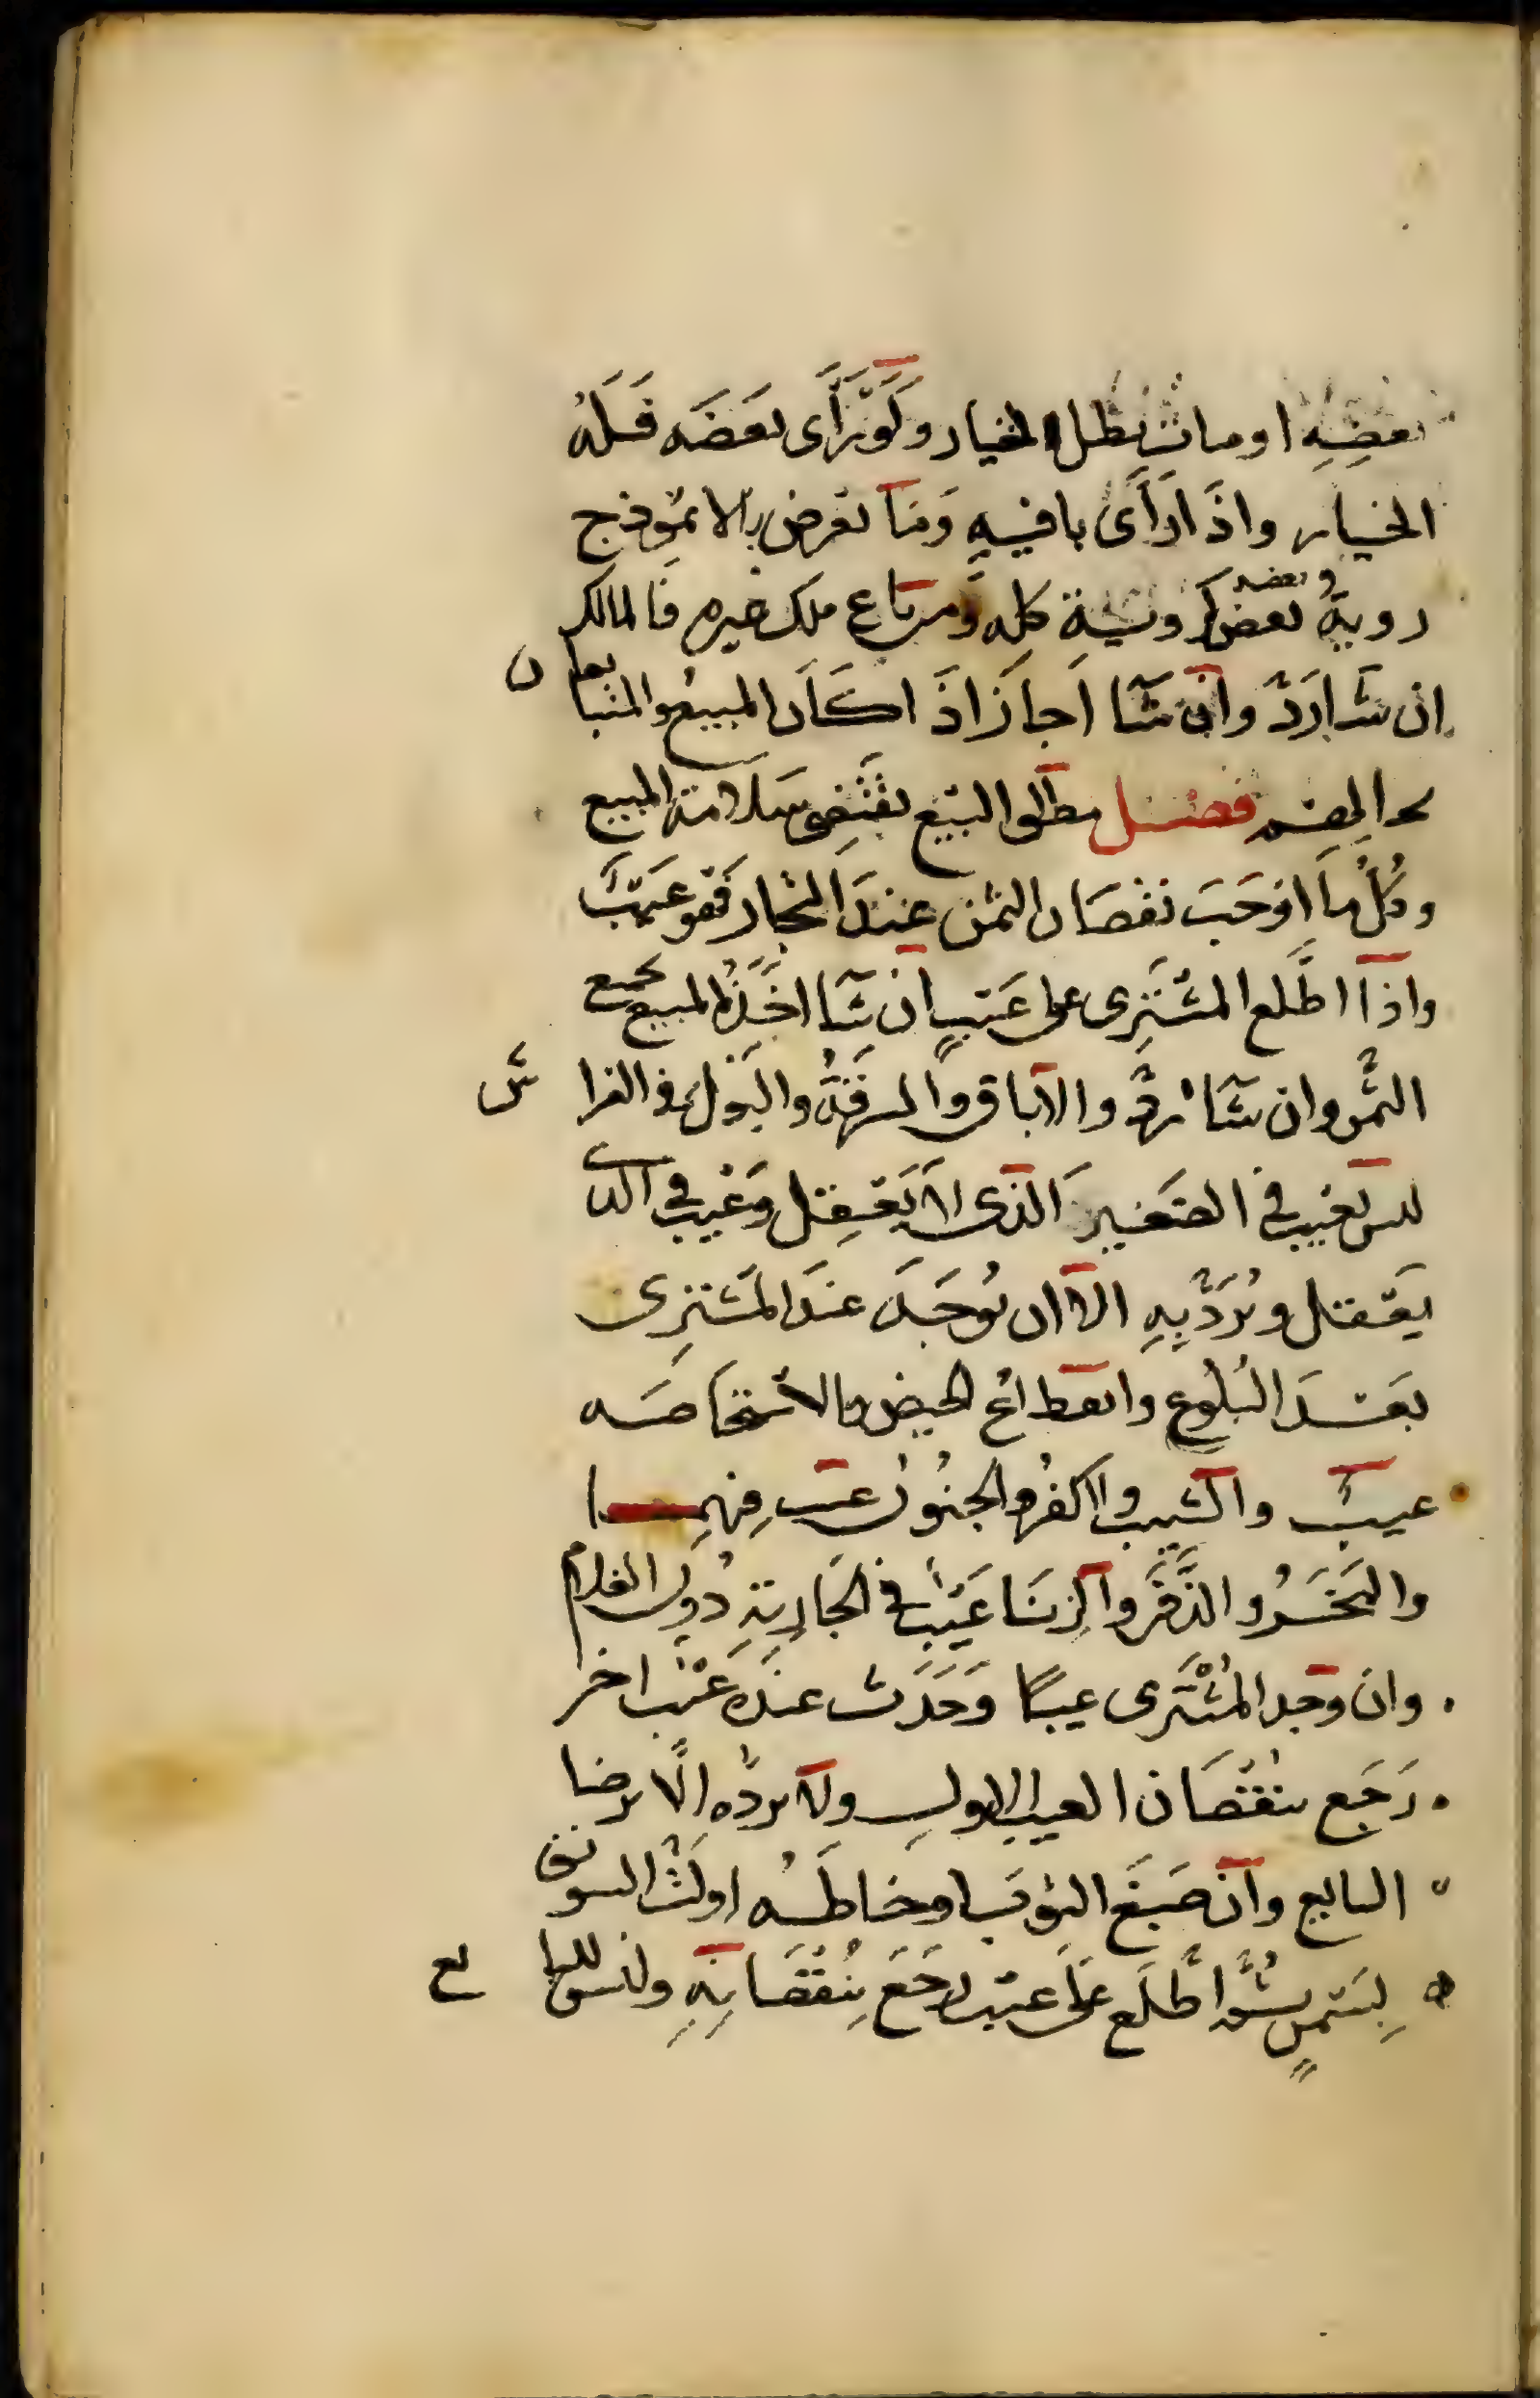 بعضه او مات بطل الخيار ولو رأى بعضه فله
الخيار واذا رأى باقيه وما تعرض بالانموذج
روية بعضه كروية كله ومن باع ملك غيره فالمالك
ان شا رد وان شا اجاز اذا كان المبيع والمتبايعان
بحالهم فصل مطلق البيع يقتضي سلامة المبيع
وكل ما اوجب نقصان الثمن عند التجار فهو عيب
واذا اطلع المشتري على عيب ان شا اخذ المبيع بجميع
الثمن وان شا رد والاباق والسرقة والبول في الفراش
ليس بعيب في الصغير الذي لا يعقل وعيب في الذي
يعقل ويرد به الا ان يوجد عند المشتري
بعد البلوغ وانقطاع الحيض والاستحاضه
عيب والشيب والكفر والجنون عيب فيهما
والبخر والذفر والزنا عيب في الجارية دون الغلام
وان وجد المشتري عيبا وحدث عنده عيب اخر
رجع بنقصان العيب الاول ولا يرده الا برضا
البايع وان صبغ الثوب او خاطه او لت السويق
بسمن ثم اطلع على عيب رجع بنقصانه وليس للبايع